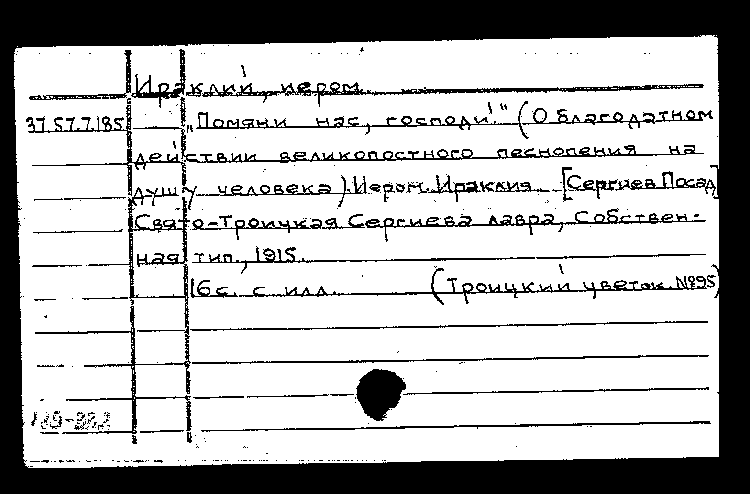 Ираклий, иером.
37.57.7.185 „Помяни нас, господи!" (О благодатном
действии великопостного песнопения на
душу человека). Иером. Ираклия. [Сергиев Посад]
Свято-Троицкая Сергиева лавра, Собствен-
ная тип., 1915.
16 с. с илл. (Троицкий цветок. №95)